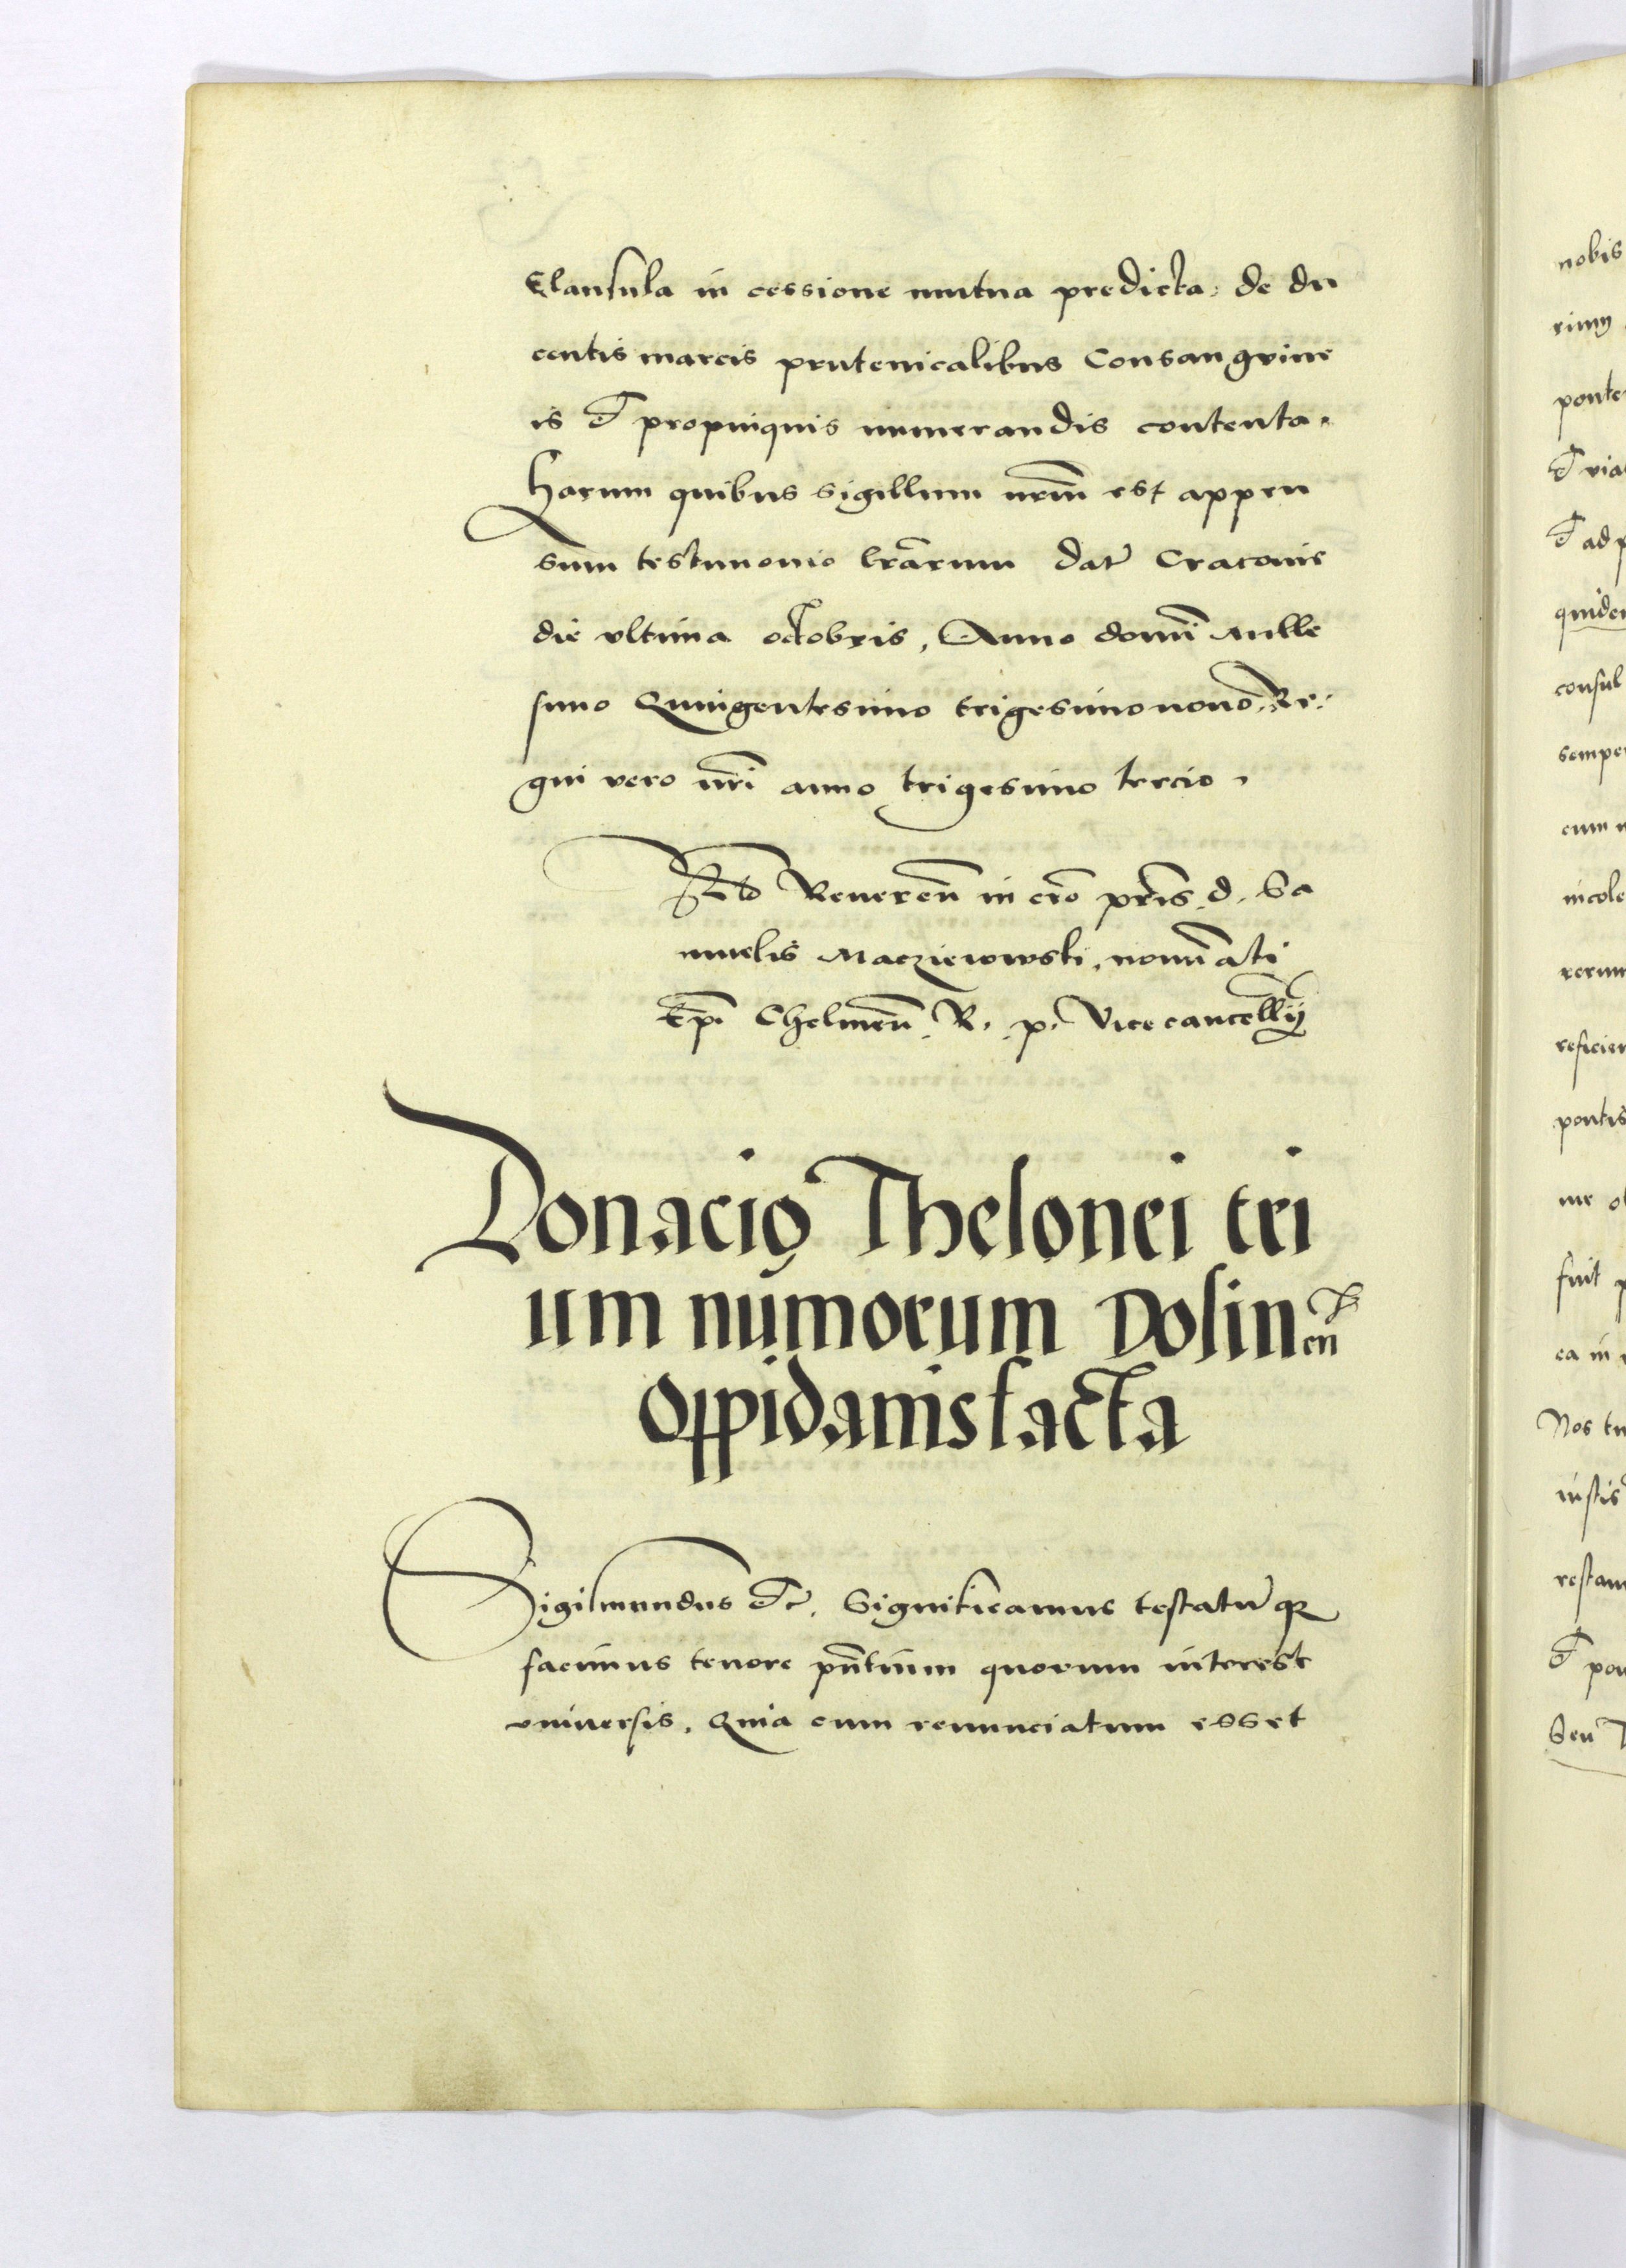 Clausula in cessione mutua predicta, de du
centis marcis prutenicalibus Consangvine
is et propinquis numerandis contenta.
Harum quibus sigillum nrm̄ est appen
sum testimonio lrārum dat̄ Cracovie
die ultima octobris, Anno domi̅ mille
simo Quingentesimo trigesimonono, Re,
gni vero nr̄i anno trigesimo tercio,
Reveren̄ in cr̄o pr̄is d. Sa
muelis Macziewowski, nomi̅ati
Ep̄i Chelmen̄ R. p. Vicecancell̄ij
Donacio Thelonei tri
um numorum Dolinen
Oppidanis facta
Sigismundus etc. Significamus testatu̅qȝ
facimus tenore pn̄tium quorum interest
universis, Quia cum renunciatum esset
nobis
rimu
ponte
et via
et ad p
quidem
consul
semper
cum
incole
rerum
reficien
pontis
me
fuit p
ea in
Nos
iustis
restau
et pon
Seu